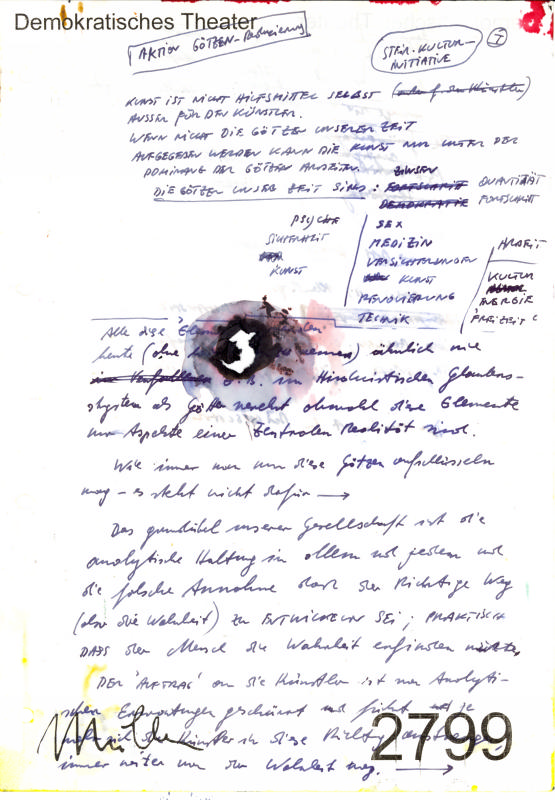 Demokratisches Theater
AKTION GÖTZEN-Reduzierung
STEIR. KULTUR-
INITIATIVE
I
KUNST IST NICHT HILFSMITTEL SELBST
AUSSER FÜR DEN KÜNSTLER.
WENN NICHT DIE GÖTZEN UNSERER ZEIT
AUFGEGEBEN WERDEN KANN DIE KUNST NUR UNTER DER
DOMINANZ DER GÖTZEN
DIE GÖTZEN UNSER ZEIT SIND:
ZINSEN
FORTSCHRITT QUANTITÄT
DEMOKRATIE FORTSCHRITT
PSYCHE SEX
SICHERHEIT MEDIZIN ARBEIT
VERSICHERUNGEN
KUNST KUNST KULTUR
ENERGIE
TECHNIK FREIZEIT
Alle diese
heute (ohne nennen) ähnlich wie
z.B. im Hinduistischen Glaubens-
system als Götter verehrt obwohl diese Elemente
nur Aspekte einer Zentralen Realität sind.
Wie immer man nun diese Götzen aufschlüsseln
mag – es steht nicht dafür →
Das Grundübel unserer Gesellschaft ist die
analytische Haltung in allem und jedem und
die falsche Annahme dass der Richtige Weg
(also die Wahrheit) zu ENTWICKELN SEI; PRAKTISCH
DASS der Mensch die Wahrheit erfinden
DER 'AUFTRAG' an die Künstler ist von Analyti-
schen Erwartungen und führt
Künstler in diese Richtung
immer weiter von der Wahrheit weg. →
2799